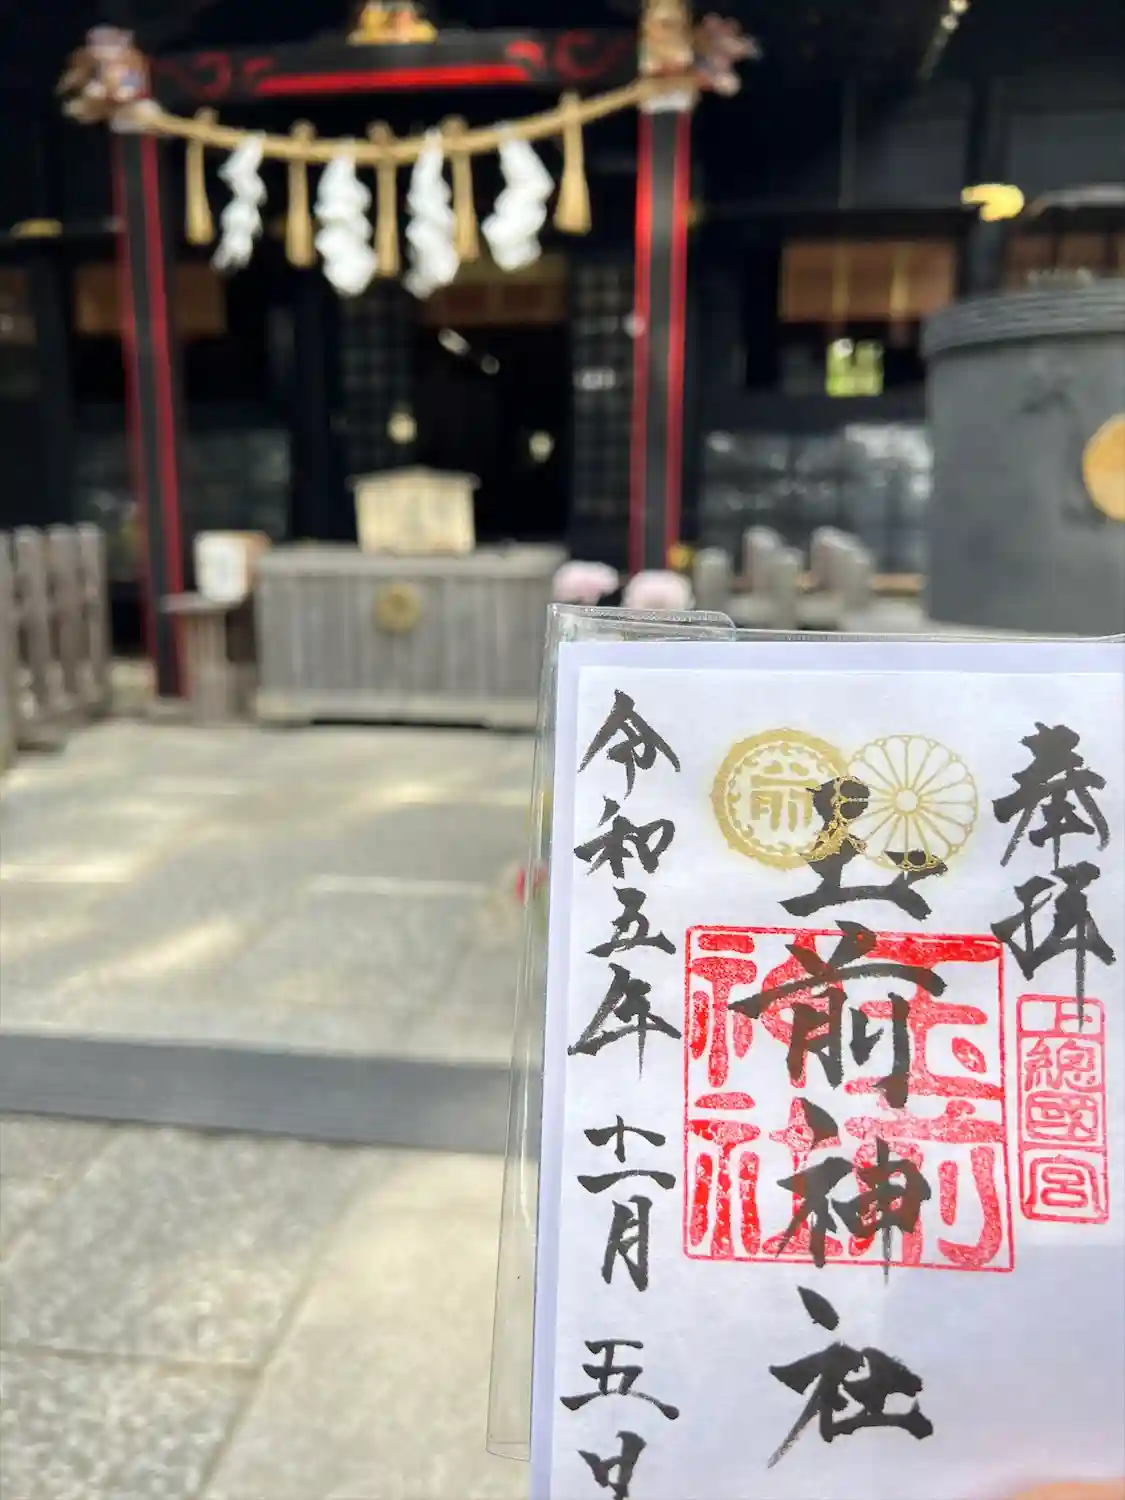 奉拝
上總國一宮
玉前神社
前
玉前神社
令和五年 十一月 五日